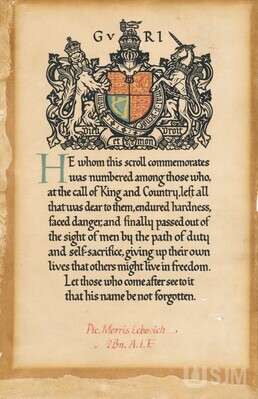 G V R I
HONI SOIT QUI MAL Y PENSE
Dieu et mon Droit
HE whom this scroll commemorates
was numbered among those who,
at the call of King and Country, left all
that was dear to them, endured hardness,
faced danger, and finally passed out of
the sight of men by the path of duty
and self-sacrifice, giving up their own
lives that others might live in freedom.
Let those who come after see to it
that his name be not forgotten.
Pte. Morris Lebovich
2Bn. A.I.F.
SJM